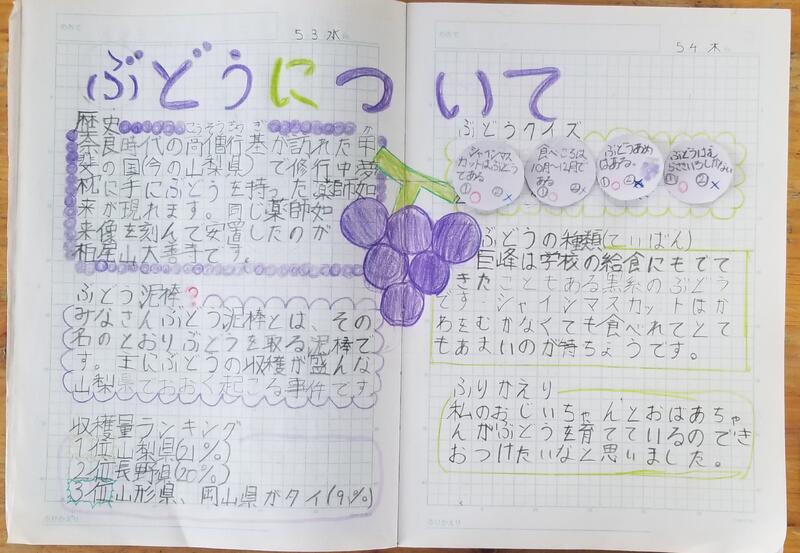 5 3 水
ぶどうについて
歴史
奈良時代の高僧行基が訪れた甲
斐の国(今の山梨県)で修行中夢
枕に手にぶどうを持った薬師如
来が現れます。同じ薬師如
来像を刻んで安置したのが
柏尾山大善寺です。
ぶどう泥棒?
みなさんぶどう泥棒とは、その
名のとおりぶどうを取る泥棒で
す。主にぶどうの収穫が盛んな
山梨県でおおく起こる事件です
収穫量ランキング
1位山梨県(21%)
2位長野県(20%)
3位山形県、岡山県がタイ(9%)
ふりかえり
5 4 木
ぶどうクイズ
シャインマス
カットはぶどう
である
① ○ ② ×
食べごろは
10月~12月で
ある
① ○ ② ×
ぶどうあめ
はある。
① ○ ② ×
ぶどうはむ
らさきいろしかない
① ○ ② ×
ぶどうの種類(ていばん)
巨峰は学校の給食にもでて
きたこともある黒系のぶどう
です。シャインマスカットはか
わをむかなくても食べれてとて
もあまいのが特ちょうです。
ふりかえり
私のおじいちゃんとおばあちゃ
んがぶどうを育てているのでき
おつけたいなと思いました。
ふりかえり